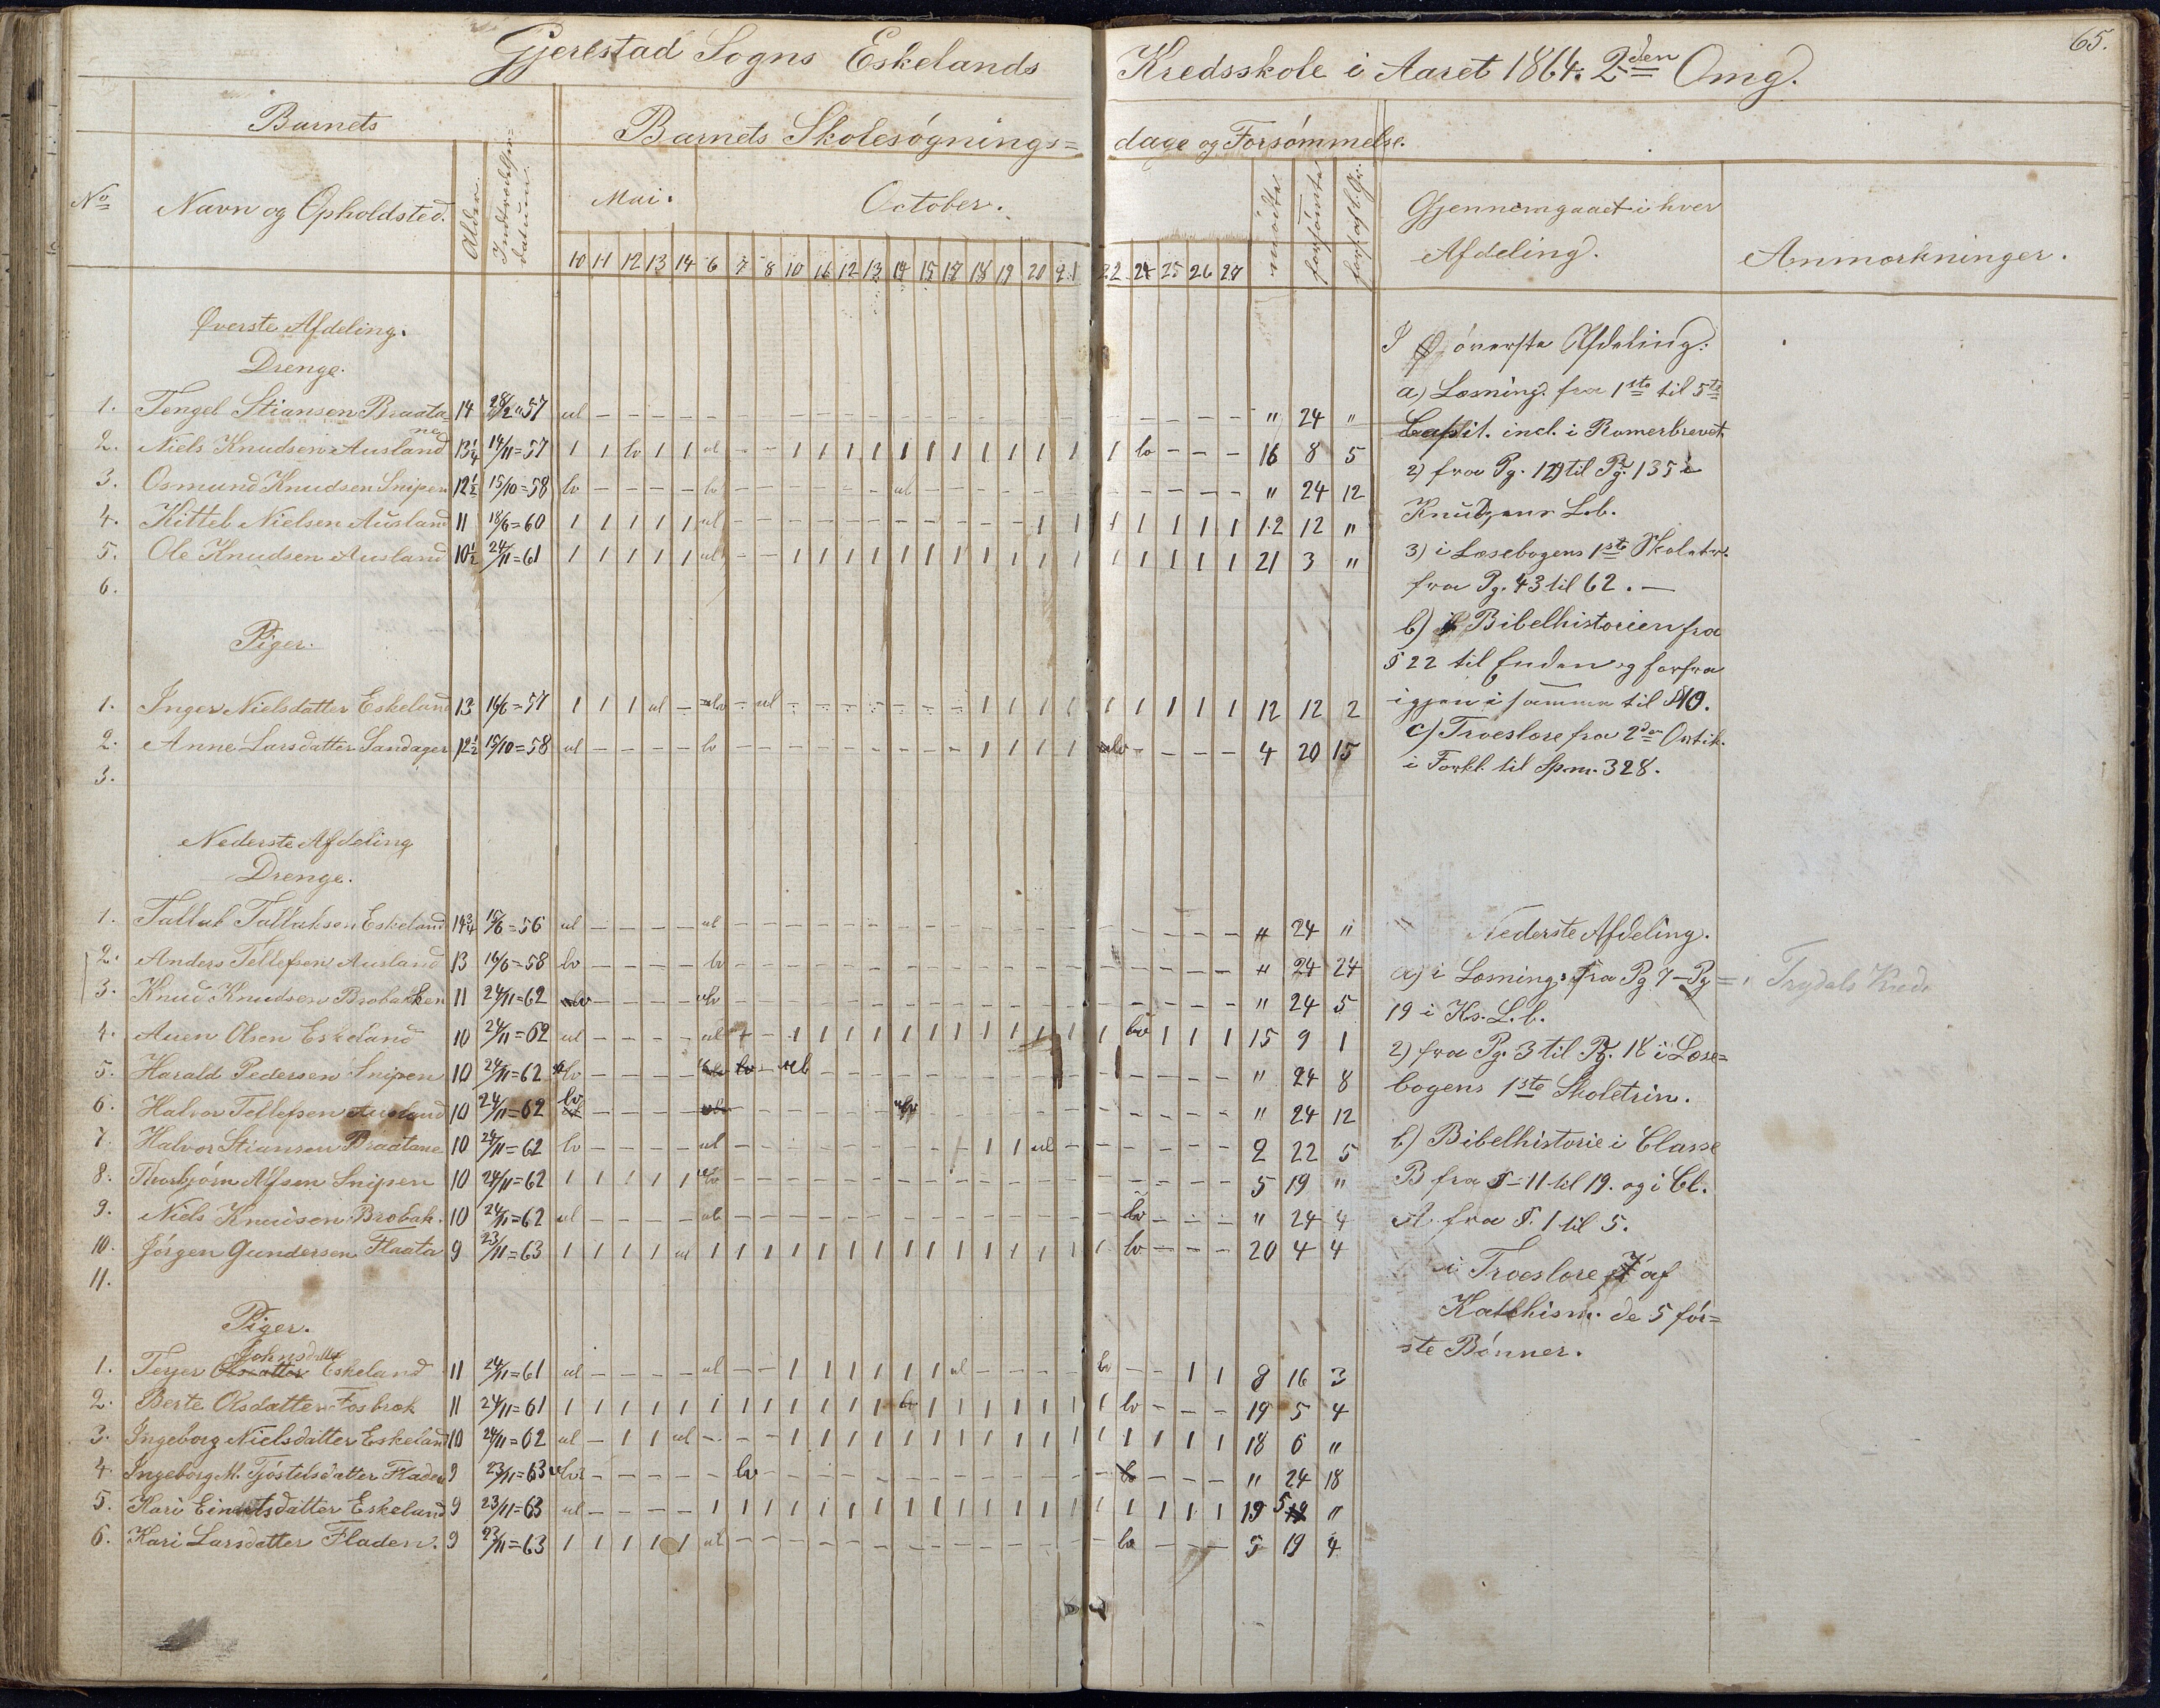 65.
Gjerestad Sogns Eskelands Kredsskole i Aaret 1864. 2den Omg.
Barnets
Barnets Skolesøgnings= dage og Forsømmelse.
No Navn og Opholdsted. Alder. Indtrædelses= datum. Mai. October. mødte forsømte forf. af l. Gr. Gjennemgaaet i hver Afdeling. Anmærkninger.
10 11 12 13 14 6 7 8 10 16 12 13 14 15 17 18 19 20 21 22 24 25 26 27
Øverste Afdeling.
Drenge.
1. Tengel Stiansen Braata= 14 28/2=57 ul – – – – – – – – – – – – – – – – – – – – – – – " 24 "
nen
2. Niels Knudsen Ausland 13¼ 14/11=57 1 1 lv 1 1 ul – – 1 1 1 1 1 1 1 1 1 1 1 1 lv – – – 16 8 5
3. Osmund Knudsen Snipen 12½ 15/10=58 lv – – – – lv – – – – – – ul – – – – – – – – – – – " 24 12
4. Kittel Nielsen Ausland 11 18/6=60 1 1 1 1 1 ul – – – – – – – – – – – 1 1 1 1 1 1 1 12 12 "
5. Ole Knudsen Ausland 10½ 24/11=61 1 1 1 1 1 ul – – 1 1 1 1 1 1 1 1 1 1 1 1 1 1 1 1 21 3 "
6.
Piger.
1. Inger Nielsdatter Eskeland 13 16/6=57 1 1 1 ul – ulv – ul – – – – – – – 1 1 1 1 1 1 1 1 1 12 12 2
2. Anne Larsdatter Sandager 12½ 15/10=58 ul – – – – lv – – – – – – – – – 1 1 1 1 lv – – – – 4 20 15
3.
Nederste Afdeling
Drenge.
1. Tallak Tallaksen Eskeland 14¾ 15/6=56 ul – – – – ul – – – – – – – – – – – – – – – – – – " 24 "
2. Anders Tellefsen Ausland 13 16/6=58 lv – – – – lv – – – – – – – – – – – – – – – – – – " 24 24
3. Knud Knudsen Brobakken 11 24/11=62 lv – – – – ulv – – – – – – – – – – – – – – – – – – " 24 5
4. Auen Olsen Eskeland 10 24/11=62 ul – – – – ul – – 1 1 1 1 1 1 1 1 1 1 1 1 lv 1 1 1 15 9 1
5. Harald Pedersen Snipen 10 24/11=62 lv – – – – lv – ul – – – – – – – – – – – – – – – " 24 8
6. Halvor Tellefsen Ausland 10 24/11=62 lv – – – – – – – – – – – ulv – – – – – – – – – – – " 24 12
7. Halvor Stiansen Braatane 10 24/11=62 lv – – – – ul – – – – – – – – – 1 1 ul – – – – – – 2 22 5
8. Thorbjørn Alfsen Snipen 10 24/11=62 1 1 1 1 1 ulv – – – – – – – – – – – – – – – – – – 5 19 "
9. Niels Knudsen Brobak. 10 24/11=62 ul – – – – ul – – – – – – – – – – – – – – lv – – – " 24 4
10. Jørgen Gundersen Flaata 9 23/11=63 1 1 1 1 ul 1 1 1 1 1 1 1 1 1 1 1 1 1 1 1 lv – – – 20 4 4
11.
Piger.
Johnsdatter
1. Terjer Olsdatter Eskeland 11 24/11=61 ul – – – – ul – – 1 1 1 1 1 1 ul – – – – lv – – 1 1 8 16 3
2. Berte Olsdatter Fosbrok 11 24/11=61 1 1 1 1 1 1 1 1 1 1 1 1 lv 1 1 1 1 1 1 1 lv – – – 19 5 4
3. Ingeborg Nielsdatter Eskeland 10 24/11=62 ul – 1 1 ul – – – 1 1 1 1 1 1 1 1 1 1 1 1 1 1 1 1 18 6 "
4. Ingeborg M. Tjøstelsdatter Fladen 9 23/11=63 ulv – – – – – lv – – – – – – – – – – – – – lv – – – " 24 18
5. Kari Eindridsdatter Eskeland 9 23/11=63 ul – – – – 1 1 1 1 1 1 1 1 1 1 1 1 1 1 1 1 1 1 1 19 5 "
6. Kari Larsdatter Fladen. 9 23/11=63 1 1 1 1 1 ul – – – – – – – – – – – – – – lv – – – 5 19 4
I øverste Afdeling:
a) Læsning. fra 1ste til 5te
Capit. incl. i Romerbrevet.
2) fra Pg. 129 til Pg. 135 i
Knudsens L.b.
3) i Læsebogens 1ste Skoletr.
fra Pg. 43 til 62. –
b) Bibelhistorien fra
§ 22 til Enden og forfra
igjen i samme til § 40.
c) Troeslære fra 2den Artik.
i Forkl. til Spm. 328.
Nederste Afdeling.
a) i Læsning: fra Pg 7 – Pg =
19 i Ks. L. b.
2) fra Pg. 3 til Pg. 18 i Læse=
bogens 1ste Skoletrin.
b) Bibelhistorie i Classe
B fra § – 11 til 19. og i Cl.
A fra §. 1 til 5.
i Troeslære af
Katekism. de 5 før=
ste Bønner.
Trydals Kreds